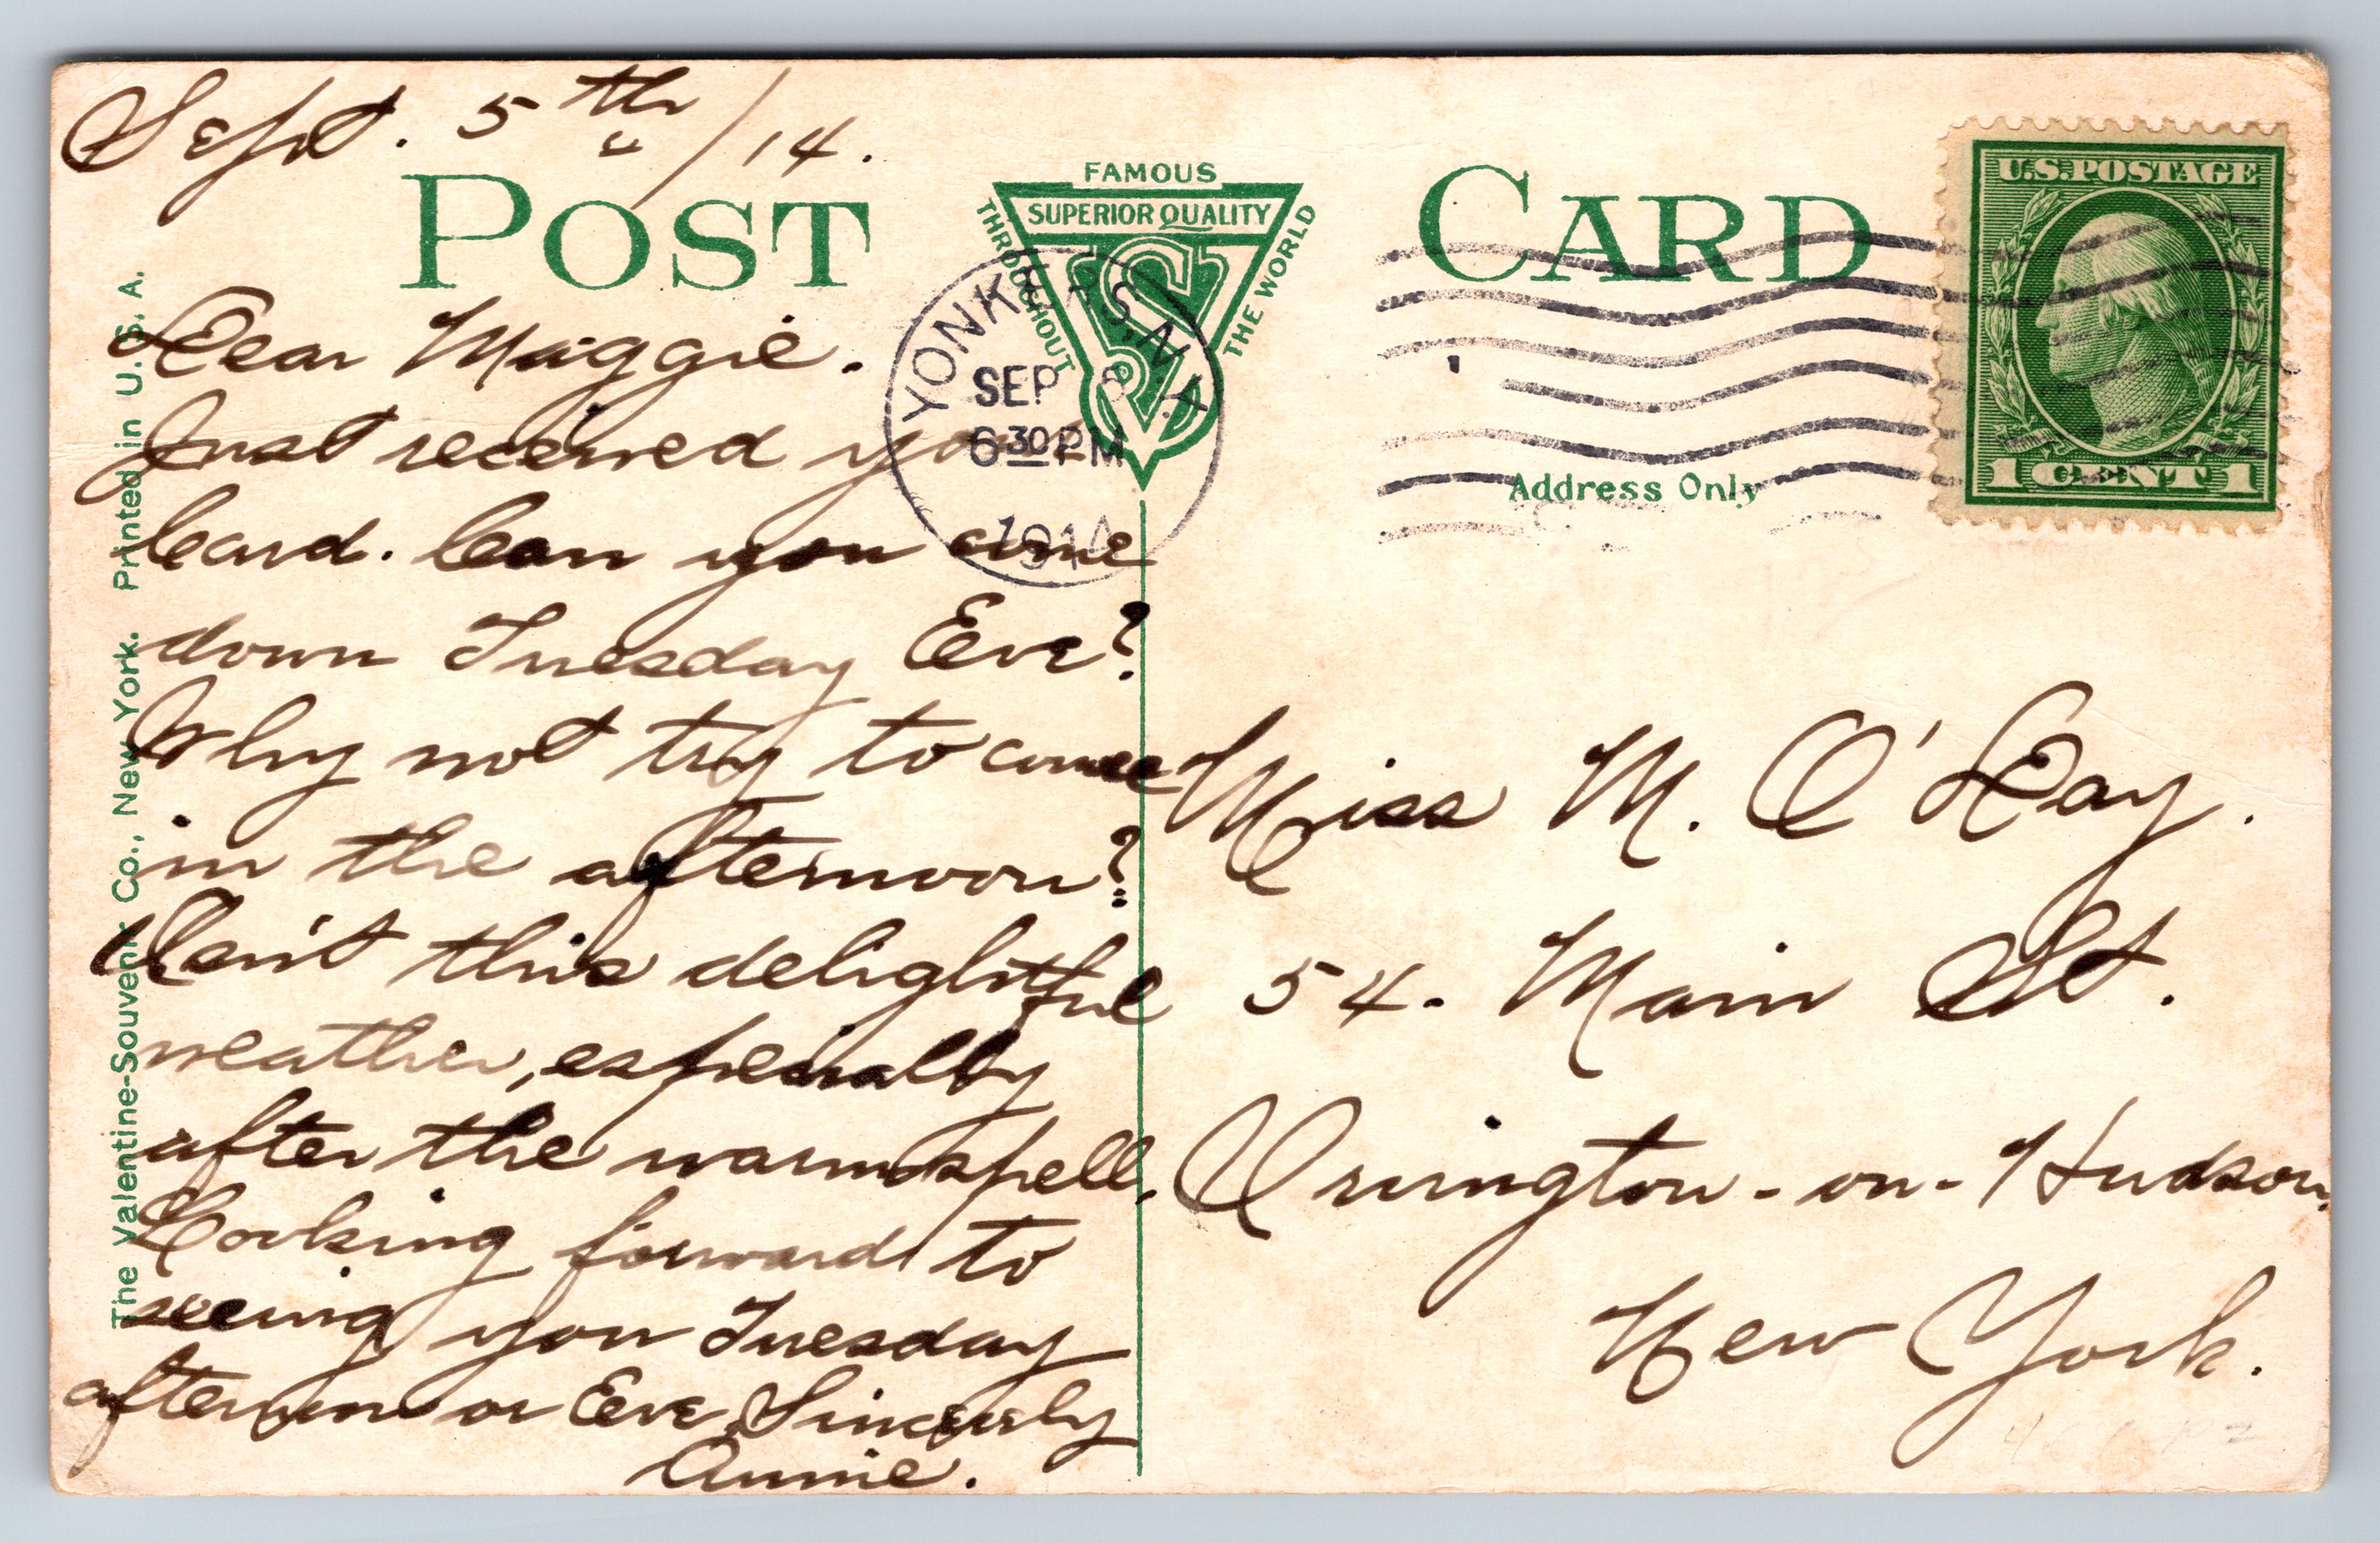 Sept. 5th/14.
POST CARD
FAMOUS
SUPERIOR QUALITY
THROUGHOUT
THE WORLD
U.S. POSTAGE
1 CENT 1
YONKERS, N.Y.
SEP
6 30 PM
1914
Address Only
The Valentine-Souvenir Co., New York. Printed in U. S. A.
Dear Maggie.
Just received your
card. Can you come
down Tuesday Eve?
Why not try to come
in the afternoon?
Isn't this delightful
weather, especially
after the warm spell.
Looking forward to
seeing you Tuesday
afternoon or Eve. Sincerely
Annie.
Miss M. O'Day.
54. Main St.
Irvington-on-Hudson,
New York.